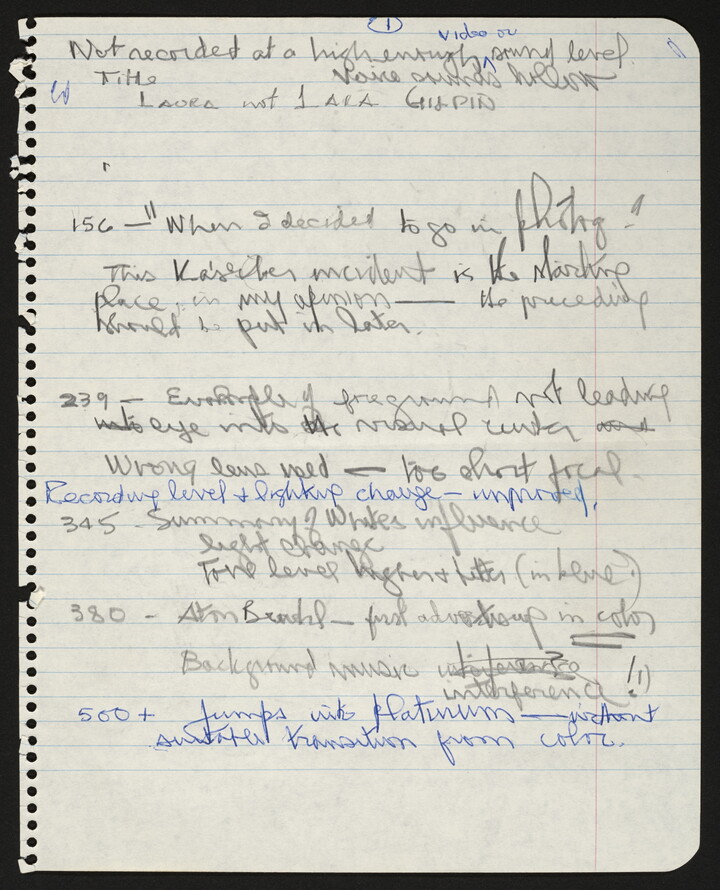 1
video or
Not recorded at a high enough sound level.
Title Voice sounds hollow
LAURA not LARA GILPIN
156 — "When I decided to go in photog."
This Käsebier incident is the starting
place, in my opinion — the preceding
should be put in later.
239 — Example of foreground not leading
into eye into the visual center
Wrong lens used — too short focal.
Recording level + lighting change — improved.
345 - Summary of White's influence
light change
Tone level higher + better (in blue.)
380 - Anton Bruehl — first in color
Background music interference
interference !!)
500+ Jumps into platinum — without
suitable transition from color.